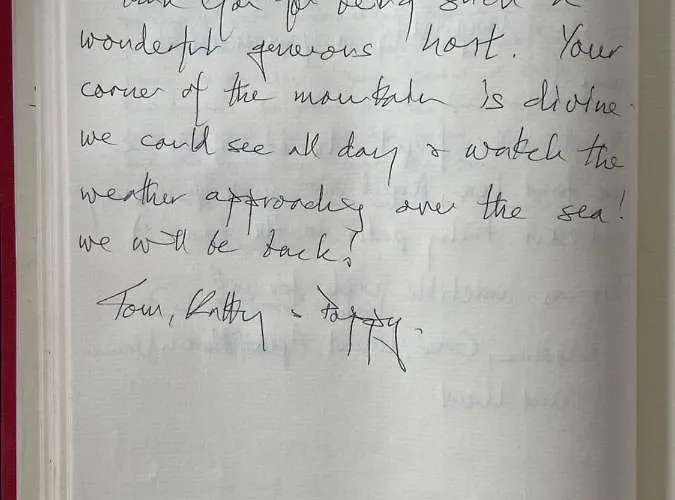 Thank you for being such a
wonderful generous host. Your
corner of the mountain is divine.
we could see all day & watch the
weather approaching over the sea!
we will be back!
Tom, Kathy & Poppy.